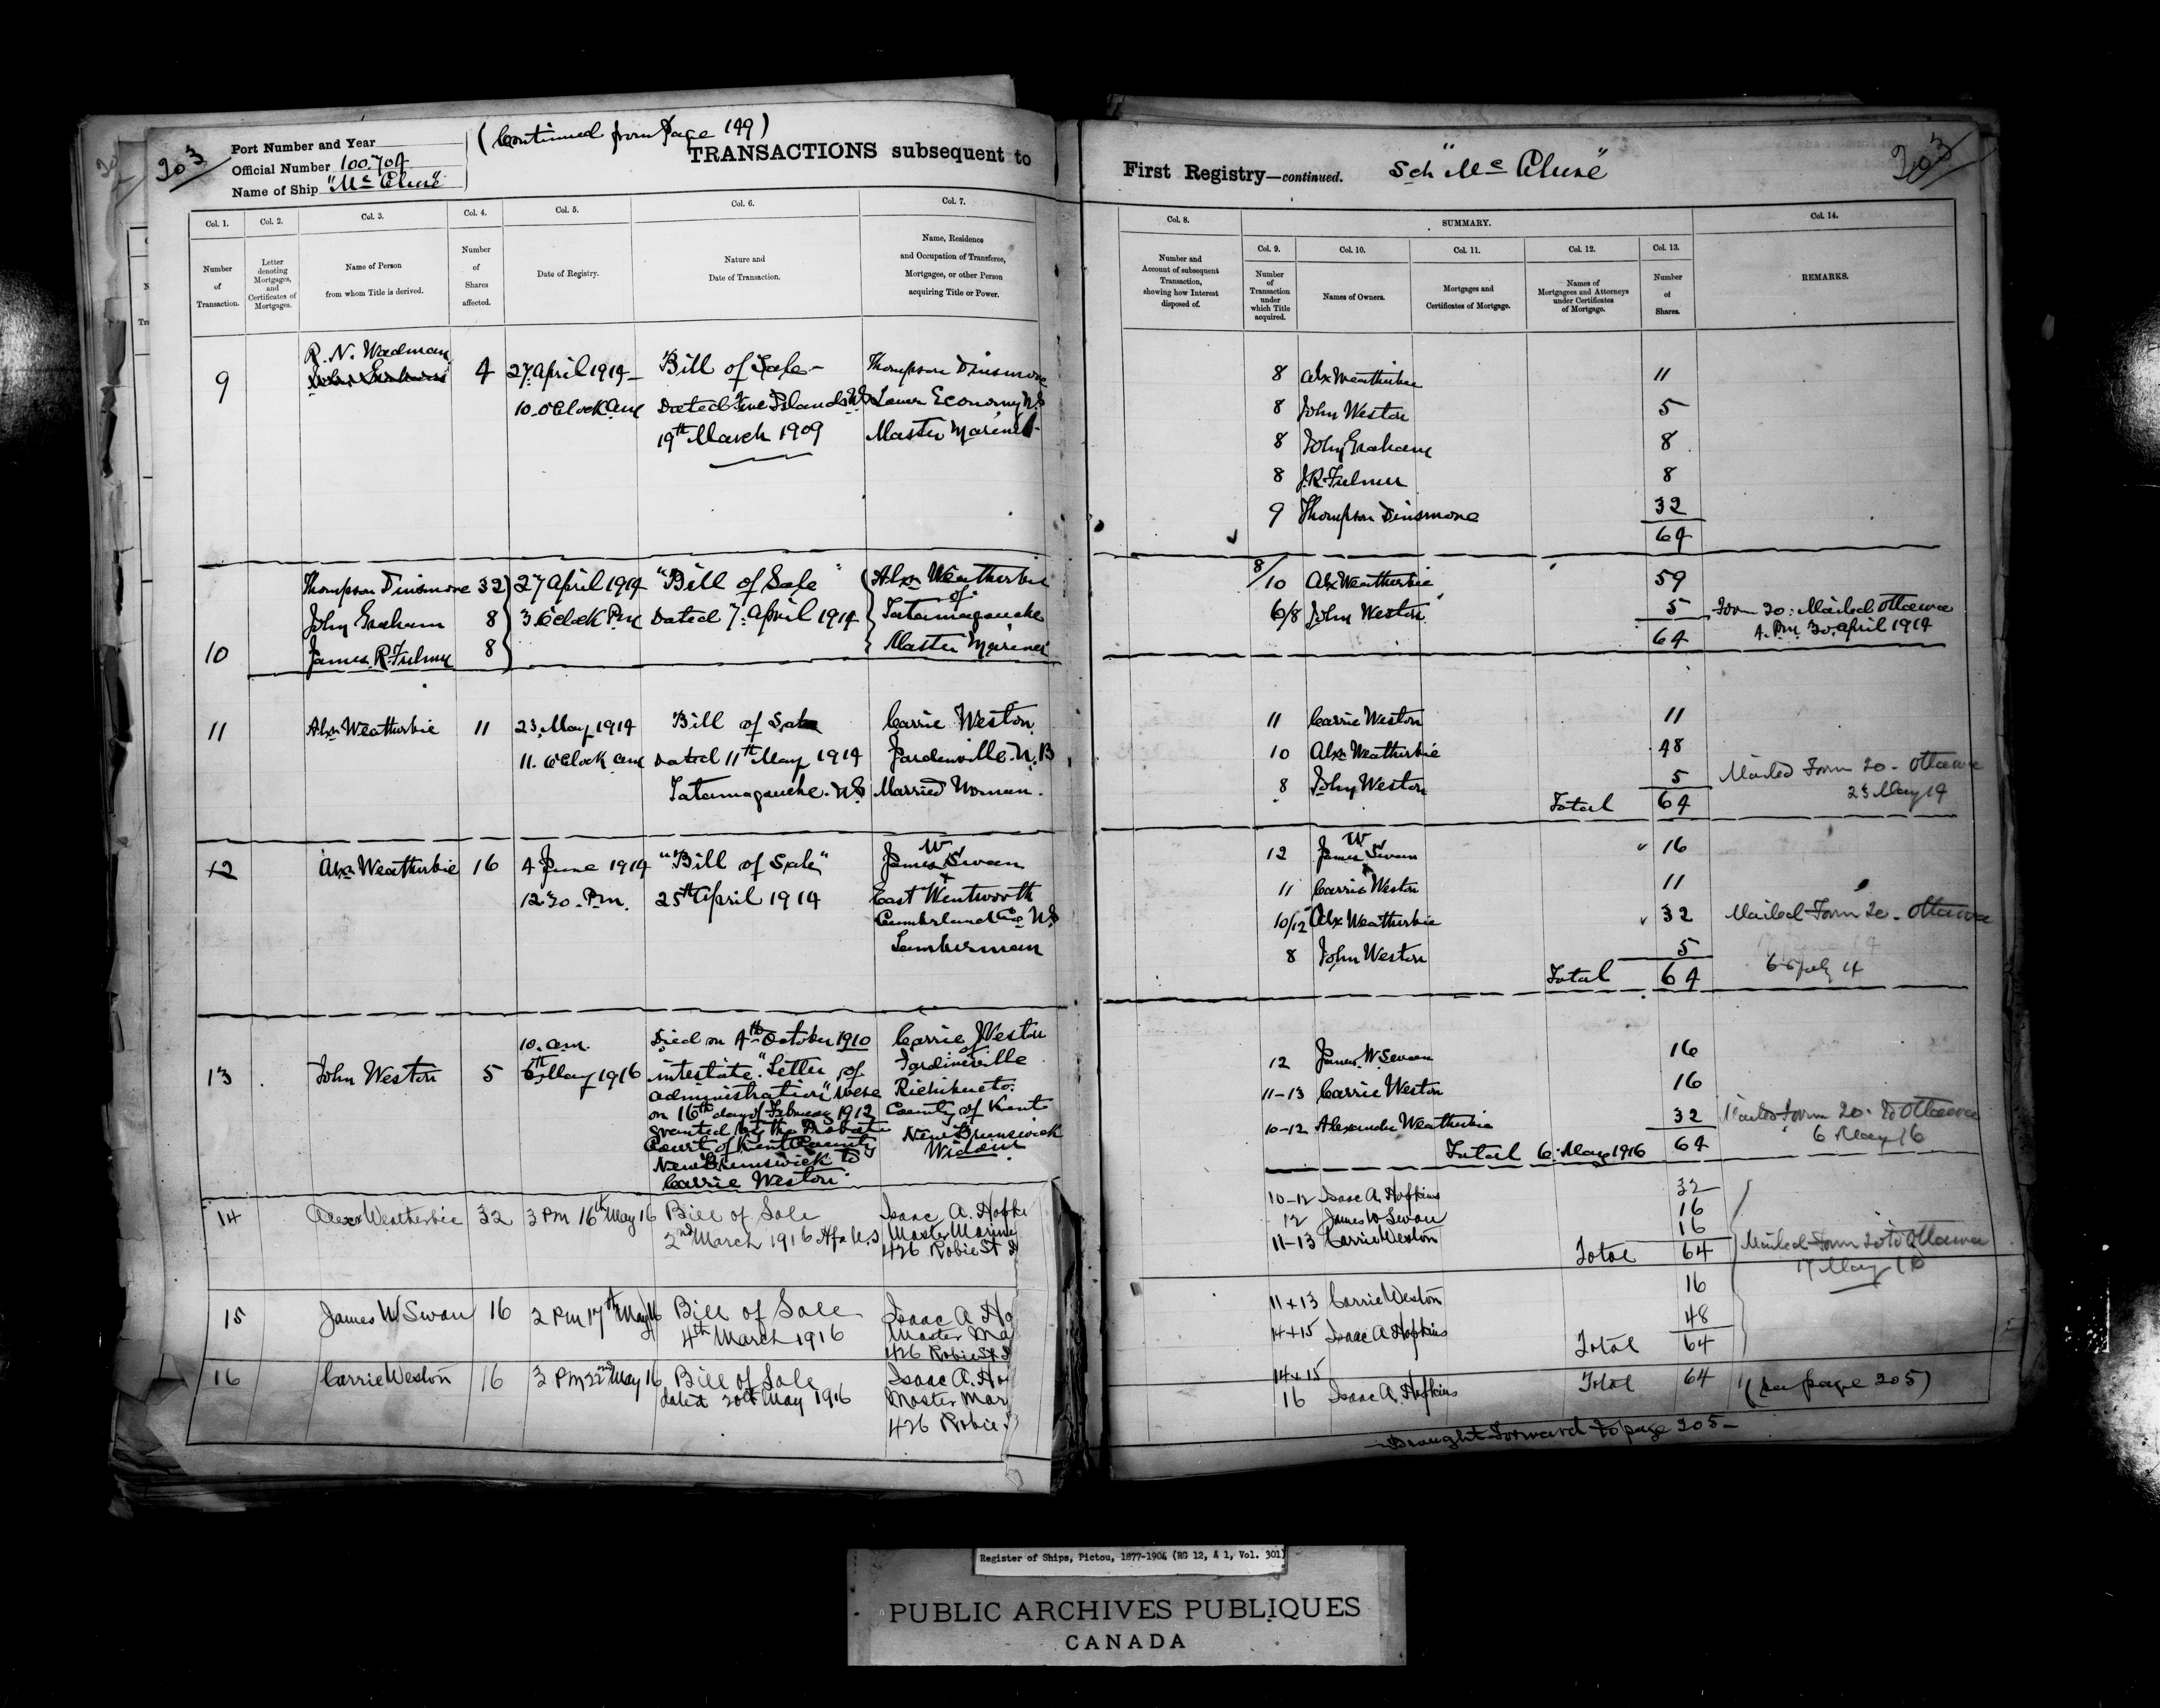 203
(Continued from Page 199)
Port Number and Year
Official Number 100.704
Name of Ship "Mc Clure"
TRANSACTIONS subsequent to
Col. 1. Col. 2. Col. 3. Col. 4. Col. 5. Col. 6. Col. 7.
Number of Transaction.
Letter denoting Mortgages, and Certificates of Mortgages.
Name of Person from whom Title is derived.
Number of Shares affected.
Date of Registry.
Nature and Date of Transaction.
Name, Residence and Occupation of Transferee, Mortgagee, or other Person acquiring Title or Power.
R. N. Wadman
9 4 27 April 1914 Bill of Sale Thompson Dinsmore
10. o'Clock am Dated Five Islands NS Lower Economy N.S
19th March 1909 Master Mariner
Thompson Dinsmore 32 27 April 1914 "Bill of Sale" Alxr Weatherbie
of
John Graham 8 3 o'clock Pm Dated 7. April 1914 Tatamagouche
10 James R. Fulmer 8 Master Mariner
11 Alxr Weatherbie 11 23 May 1914 Bill of Sale Carrie Weston
11. o'Clock am Dated 11th May 1914 Jardinville. N.B
Tatamagouche. N.S Married Woman.
12 Alxr Weatherbie 16 4 June 1914 "Bill of Sale" James W Swan
12.30. Pm. 25th April 1914 East Wentworth
Cumberland Co NS
Lumberman
10. am. Died on 4th October 1910 Carrie Weston
of
13 John Weston 5 6th May 1916 intestate. "Letter of Jardineville
administration" were Richibucto.
on 16th day of February 1912 County of Kent
granted by the Probate New Brunswick
Court of Kent County Widow
New Brunswick to
Carrie Weston
14 Alexr Weatherbie 32 3 PM 16th May 16 Bill of Sale Isaac A. Hopki
2nd March 1916 Master Marine
426 Robie St
15 James W Swan 16 2 Pm 17th May 16 Bill of Sale Isaac A Ho
4th March 1916 Master Ma
426 Robie St
16 Carrie Weston 16 3 PM 22nd May 16 Bill of Sale Isaac A. Ho
dated 20th May 1916 Master Mar
426 Robie
First Registry—continued. Sch "Mc Clure"
203
Col. 8. SUMMARY. Col. 14.
Col. 9. Col. 10. Col. 11. Col. 12. Col. 13.
Number and Account of subsequent Transaction, showing how Interest disposed of.
Number of Transaction under which Title acquired.
Names of Owners.
Mortgages and Certificates of Mortgage.
Names of Mortgagees and Attorneys under Certificates of Mortgage.
Number of Shares.
REMARKS.
8 Alx Weatherbie 11
8 John Weston 5
8 John Graham 8
8 J.R. Fulmer 8
9 Thompson Dinsmore 32
64
8/10 Alx Weatherbie 59
6/8 John Weston 5 Form 20: Mailed Ottawa
64 4. Pm 30. April 1914
11 Carrie Weston 11
10 Alxr Weatherbie 48
8 John Weston 5 Mailed Form 20 - Ottawa
Total 64 23 May 14
12 James W Swan 16
11 Carrie Weston 11
10/12 Alx Weatherbie 32 Mailed Form 20 - Ottawa
8 John Weston 5
Total 64 6 July 14
12 James W Swan 16
11-13 Carrie Weston 16
10-12 Alexander Weatherbie 32 Mailed Form 20. to Ottawa
Total 6. May 1916 64 6 May 16
10-12 Isaac A. Hopkins 32
12 James W Swan 16
11-13 Carrie Weston 16
Total 64 Mailed Form 20 to Ottawa
17 May 16
11+13 Carrie Weston 16
14+15 Isaac A Hopkins 48
Total 64
14+15
16 Isaac A. Hopkins Total 64 (See page 205)
Brought Forward to page 205
Register of Ships, Pictou, 1877-1904 (RG 12, A 1, Vol. 301)
PUBLIC ARCHIVES PUBLIQUES
CANADA